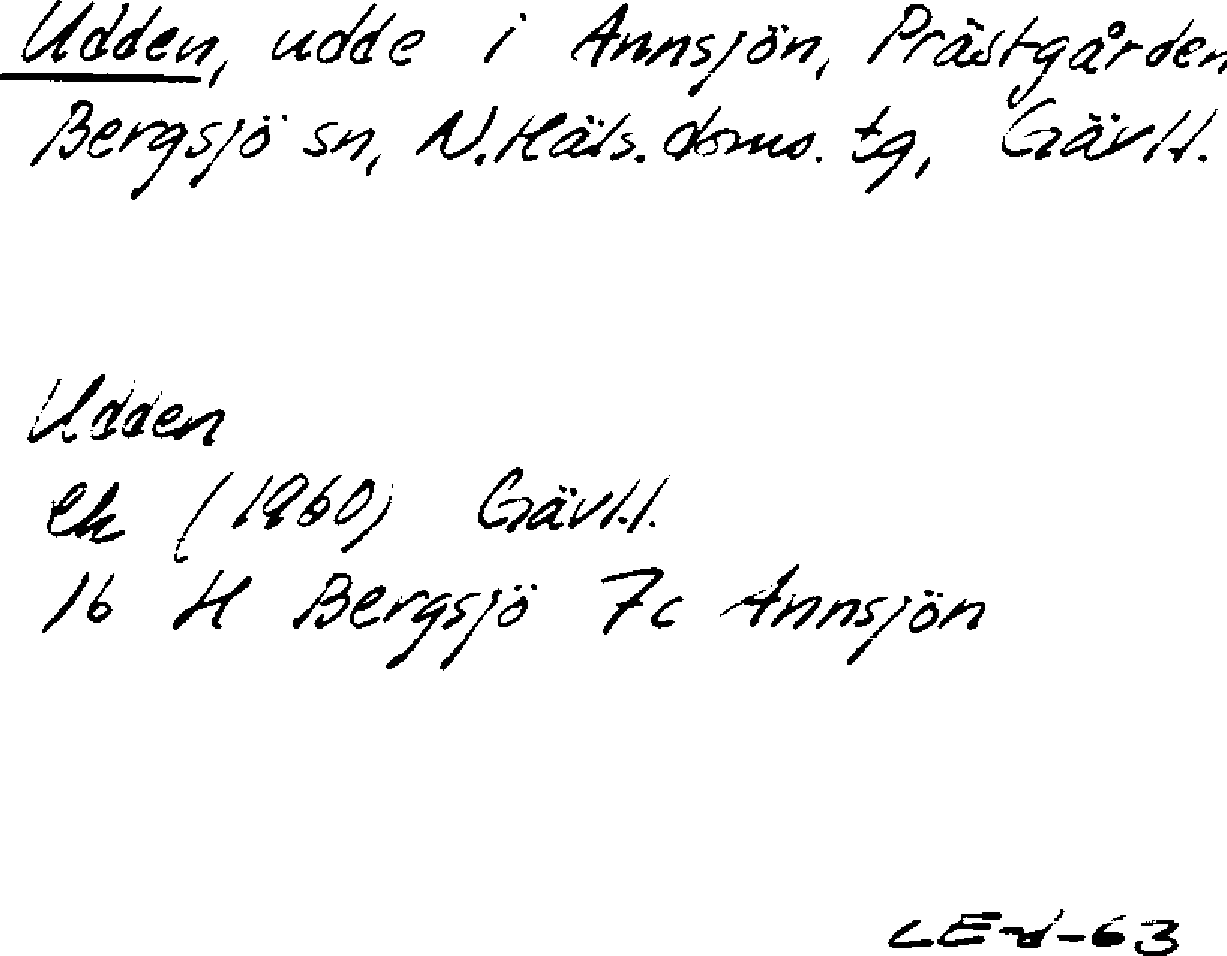 Udden, udde i Annsjön, Prästgården
Bergsjö sn, N. Häls. doms. tg, Gävl.l.
Udden
ek (1960) Gävl.l.
16 H Bergsjö 7c Annsjön
LEd-63